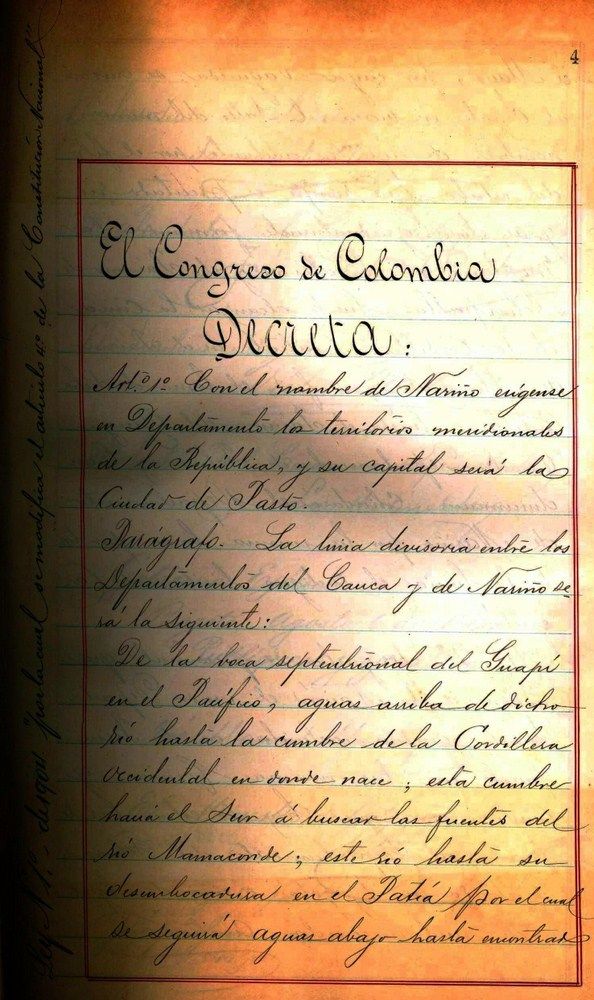 4
El Congreso de Colombia
Decreta:
Art.º 1º Con el nombre de Nariño erígense
en Departamento los territorios meridionales
de la República, y su capital será la
Ciudad de Pasto.
Parágrafo. La linia divisoria entre los
Departamentos del Cauca y de Nariño se-
rá la siguiente:
De la boca septentrional del Guapí
en el Pacífico, aguas arriba de dicho
rió hasta la cumbre de la Cordillera
Occidental en donde nace; esta cumbre
hacia el Sur á buscar las fuentes del
rió Mamaconde; este rió hasta su
desembocadura en el Patía por el cual
se seguirá aguas abajo hasta encontrar
Ley Nº 1º de 1904 "por la cual se modifica el artículo 4º de la Constitución Nacional"